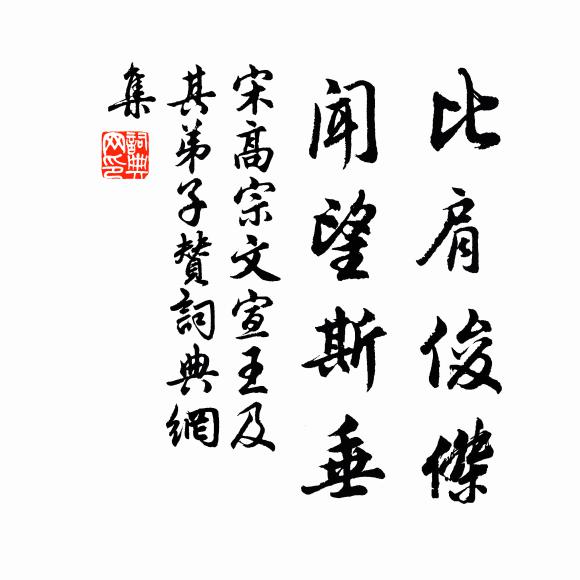 比肩俊傑
聞望斯垂
宋高宗文宣王及
其弟子贊詞典網
集
詞典網印